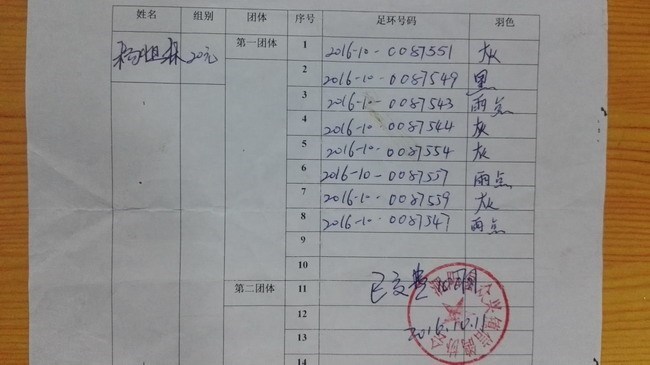 姓名 组别 团体 序号 足环号码 羽色
20元 第一团体 1 2016-10-0087551 灰
2 2016-10-0087549 黑
3 2016-10-0087543 雨点
4 2016-10-0087544 灰
5 2016-10-0087554 灰
6 2016-10-0087537 雨点
7 2016-10-0087539 灰
8 2016-10-0087547 雨点
9
10
第二团体 11 已交
12
2016.10.11
13
14